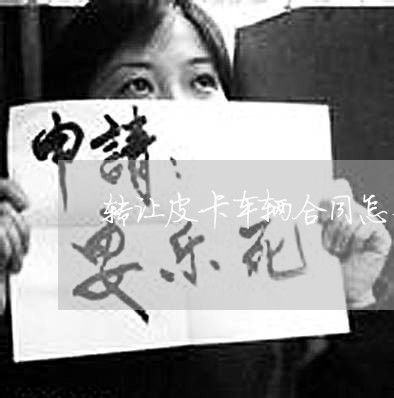 申請：
转让皮卡车辆合同怎
安乐死